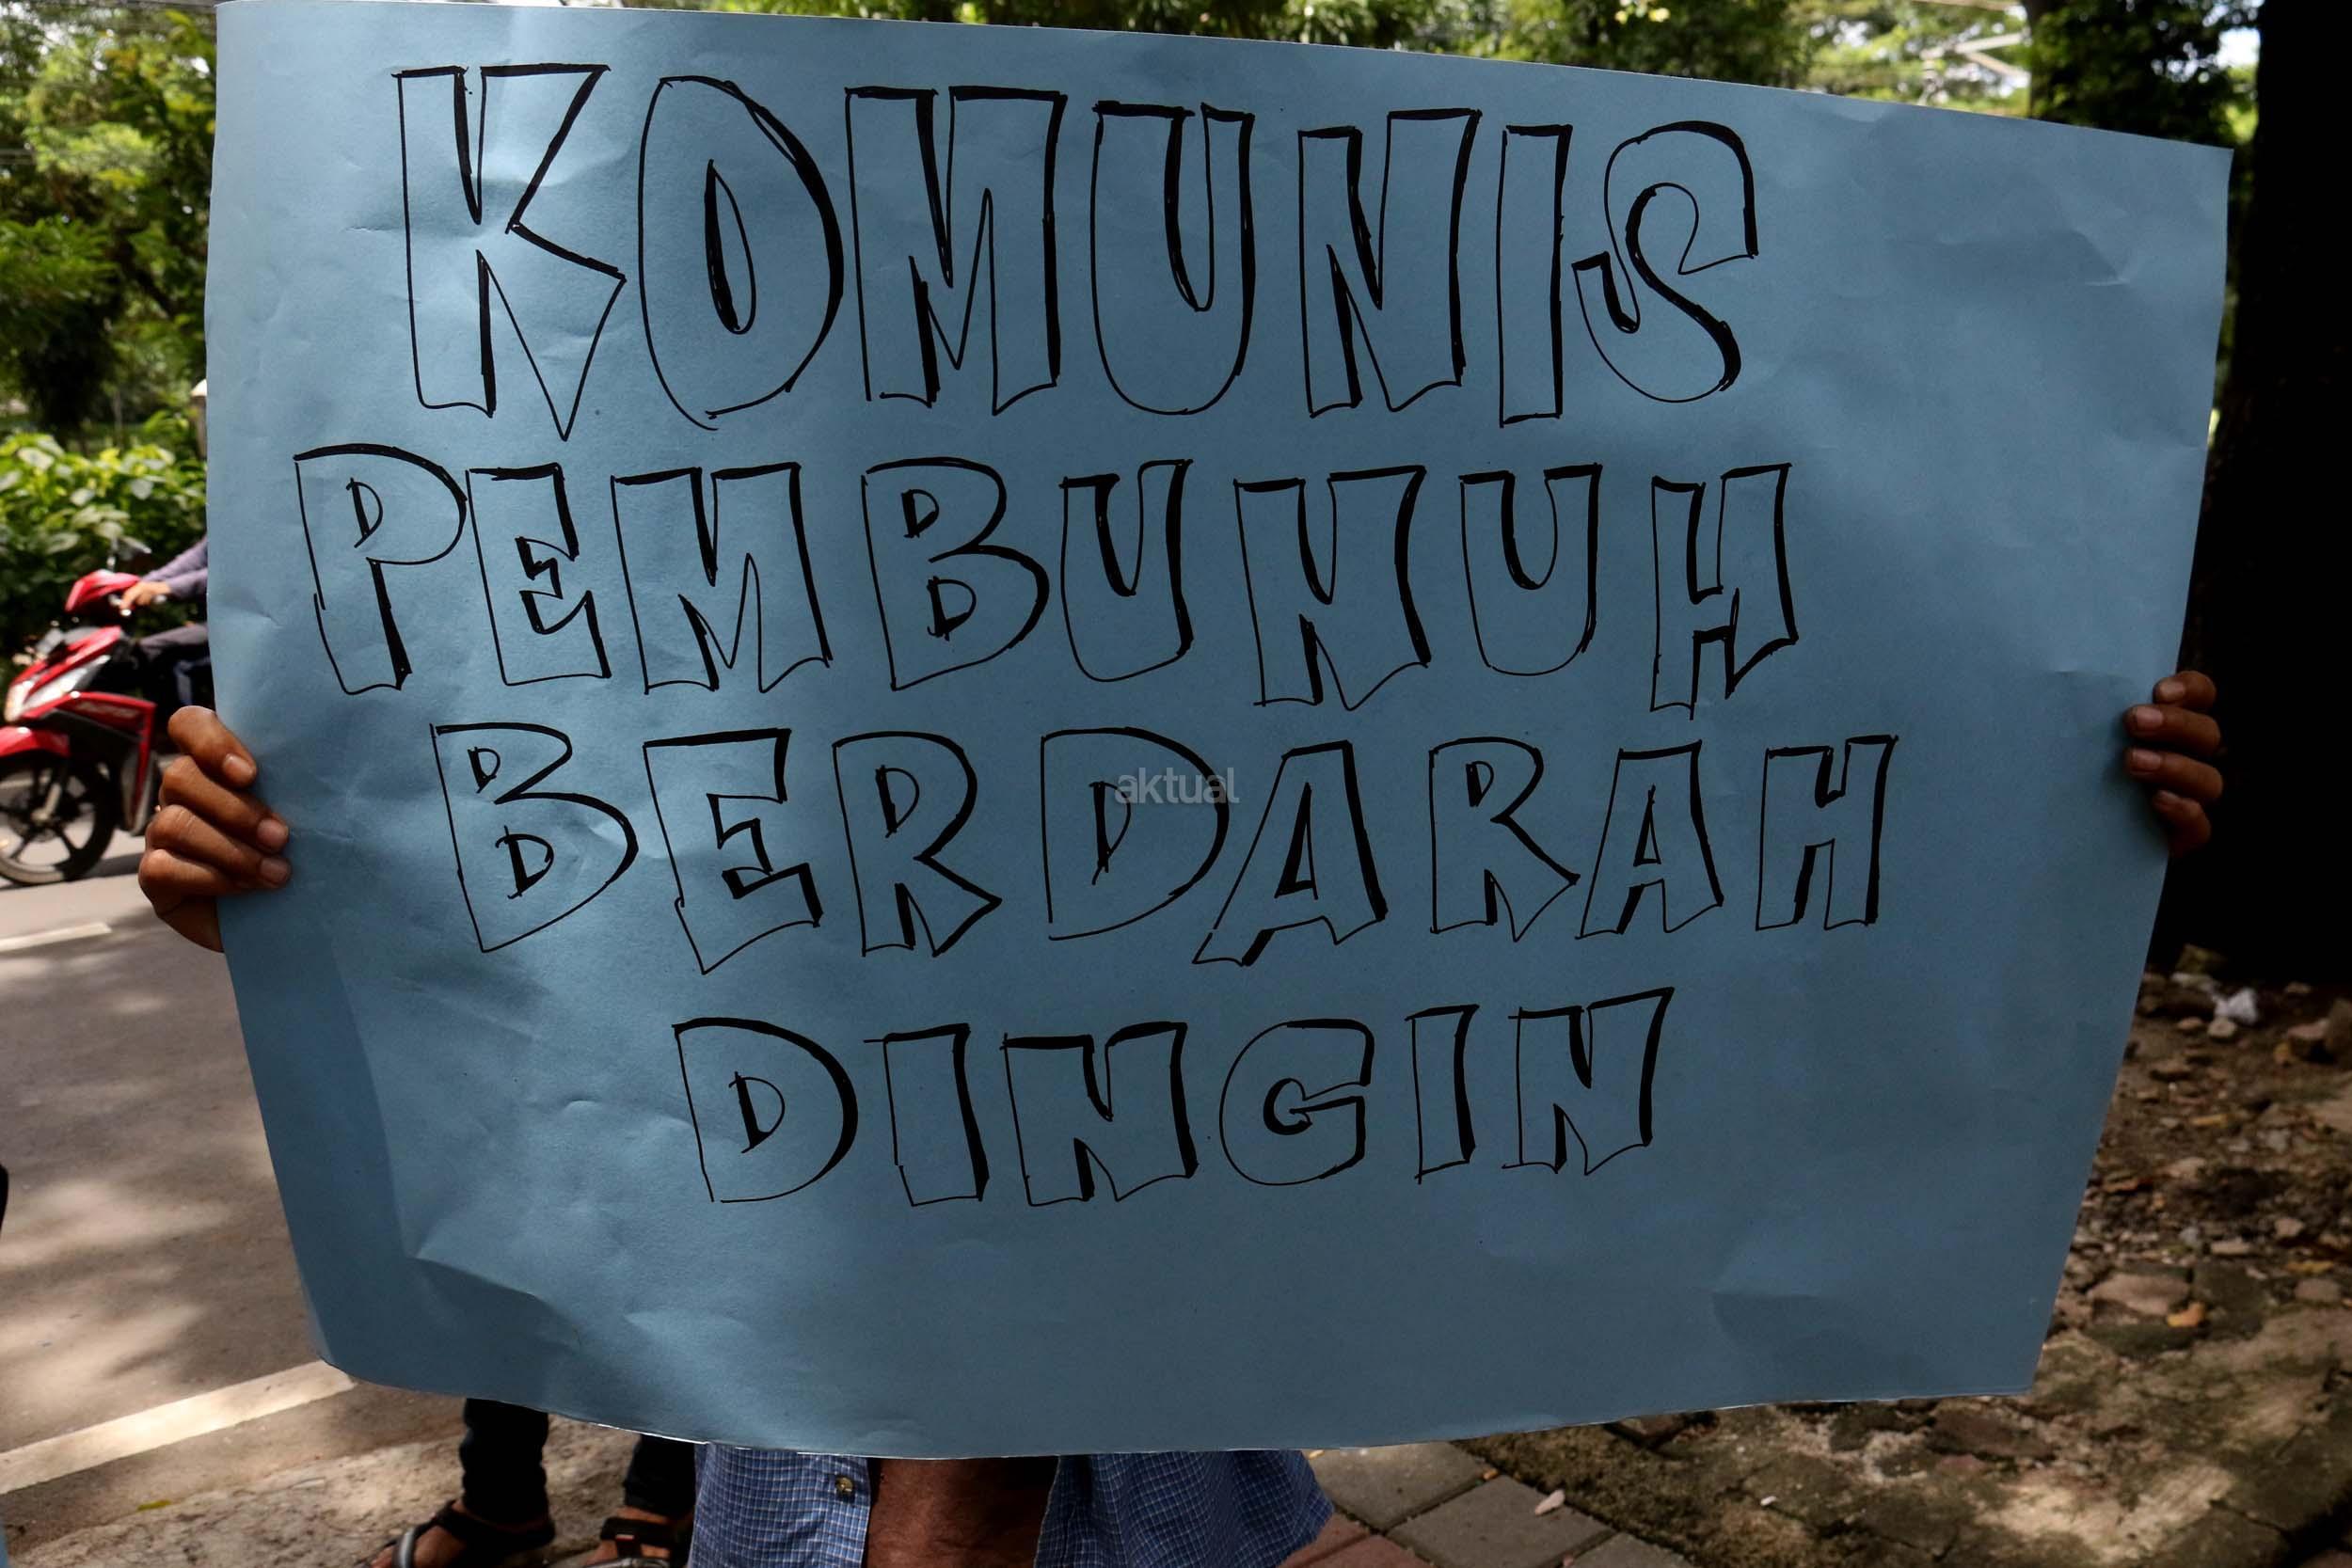 KOMUNIS
PEMBUNUH
BERDARAH
aktual
DINGIN